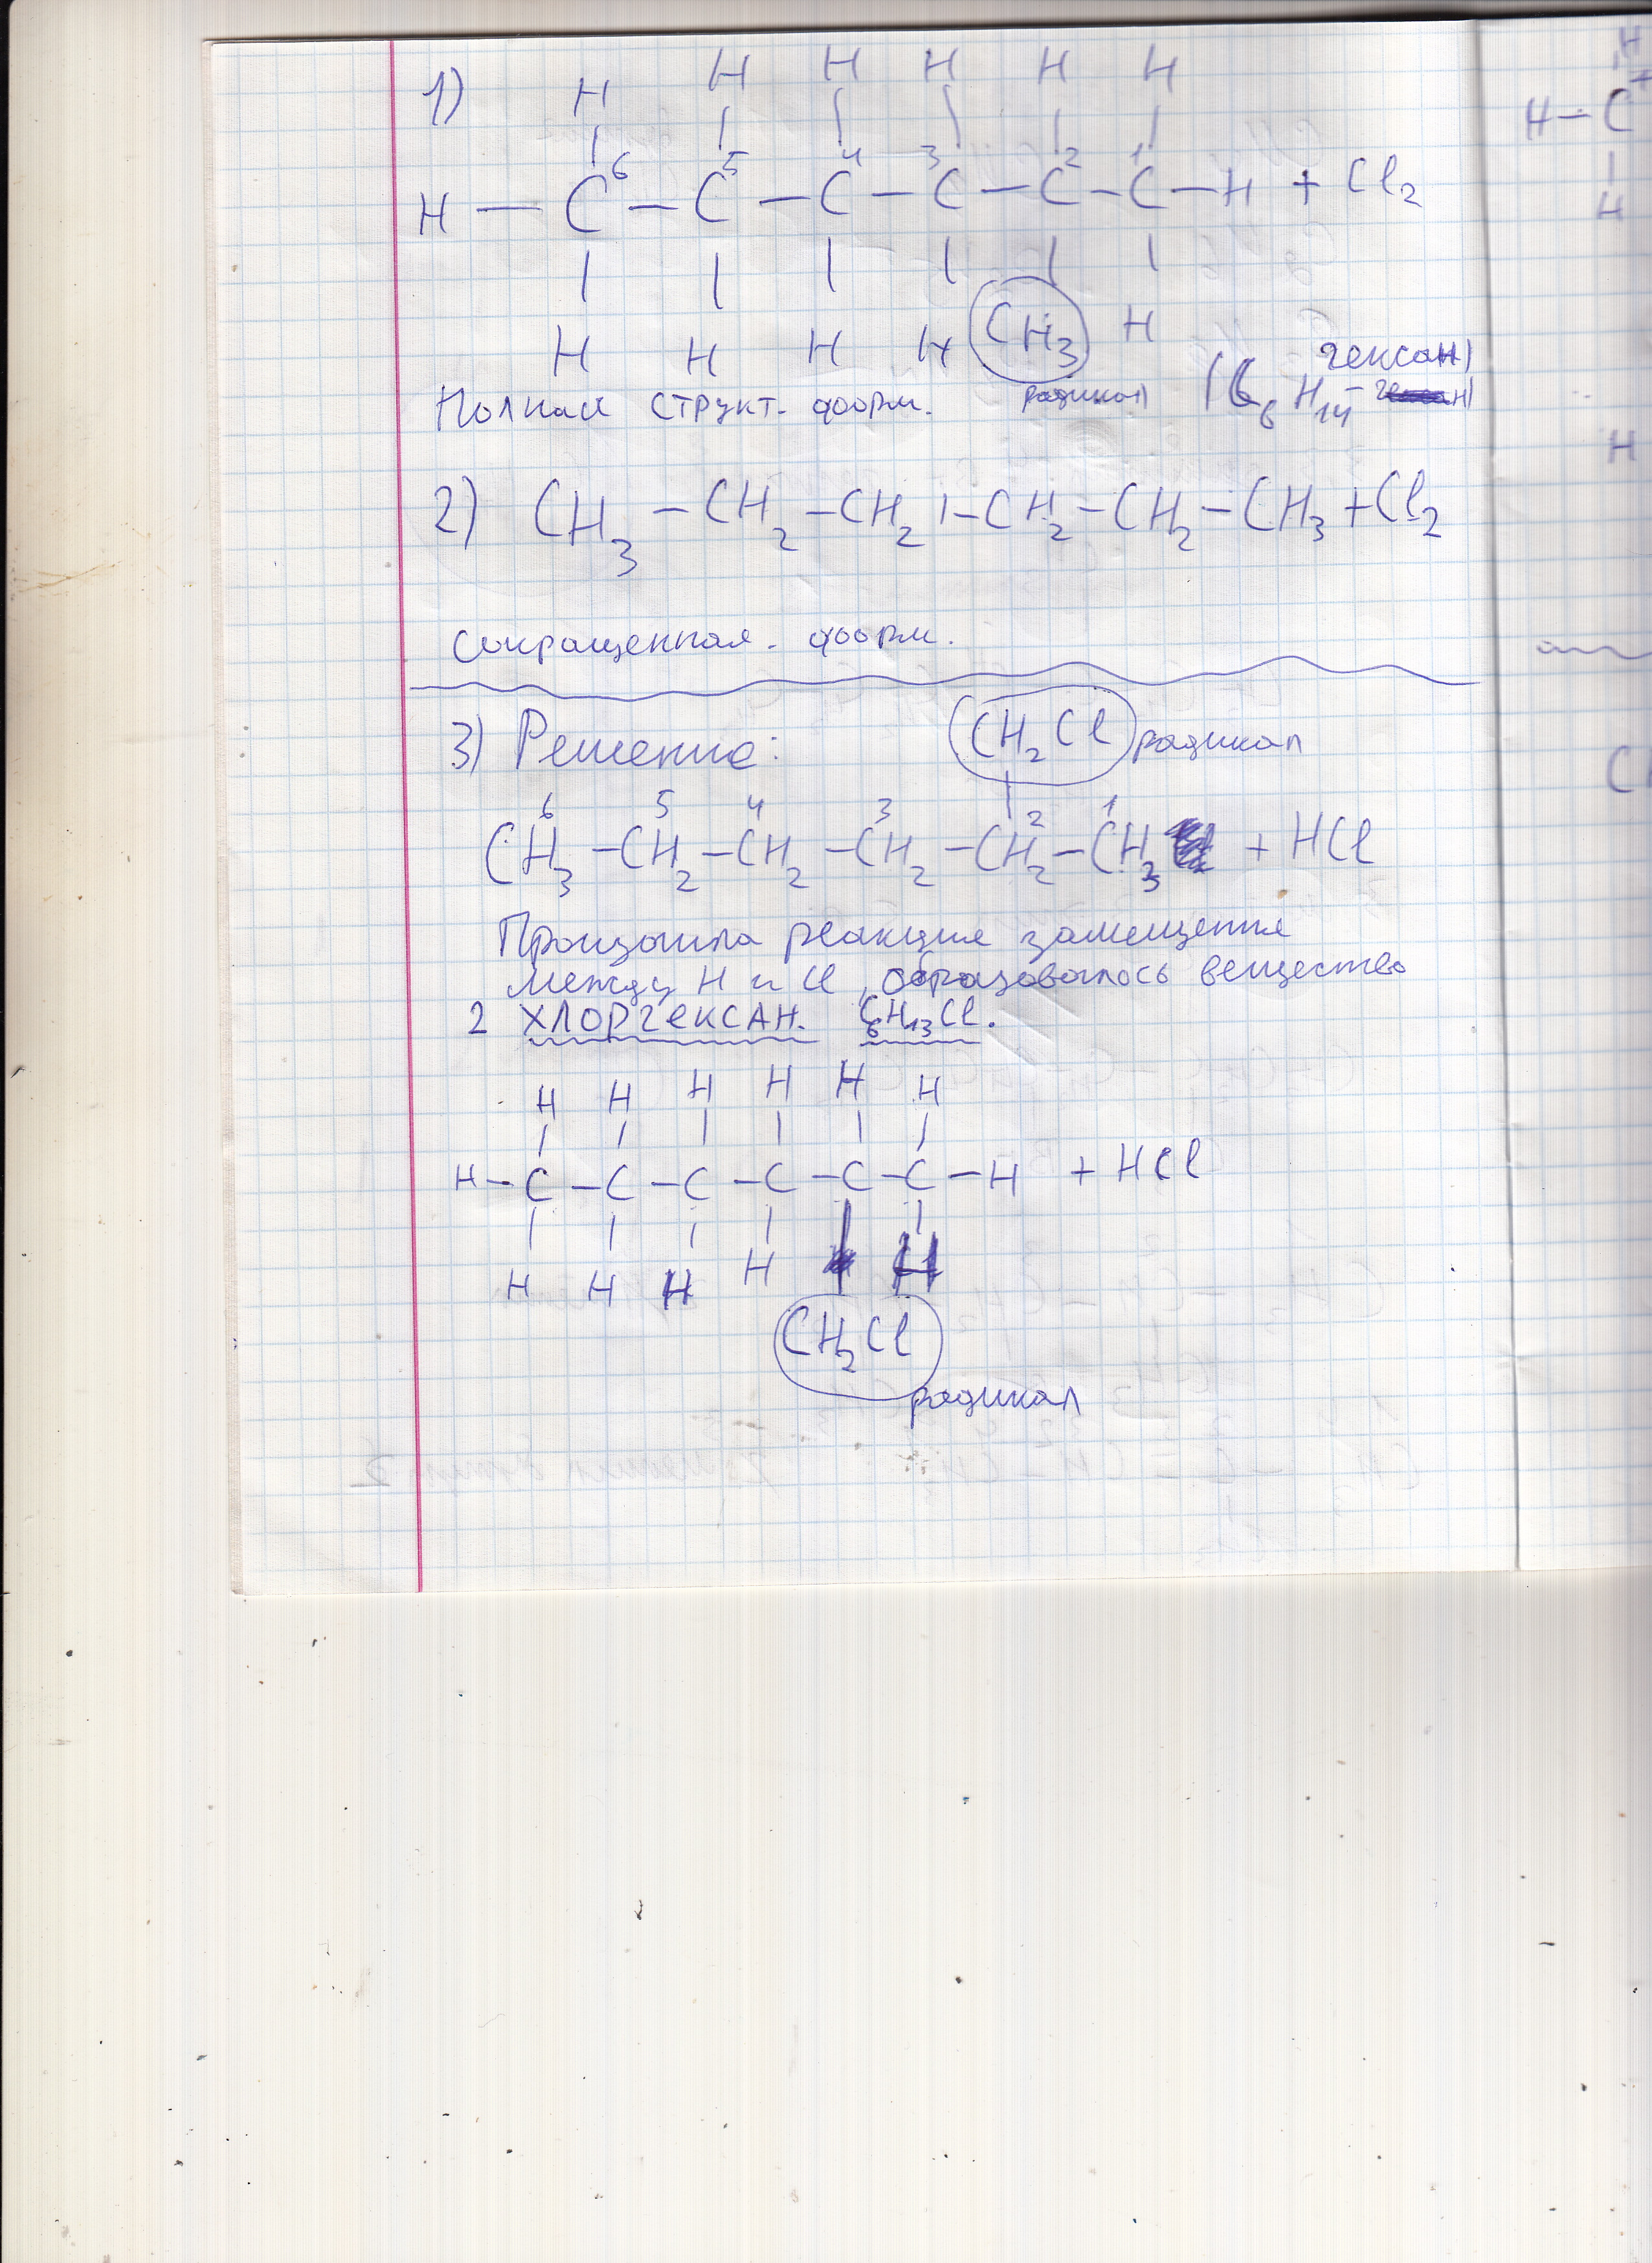 1) H H H H H H
6 5 4 3 2 1
H — C — C — C — C — C — C — H + Cl2
H H H H CH3 H
Полная структ. форм. радикал (C6H14 - гексан)
2) CH3 — CH2 — CH2 — CH2 — CH2 — CH3 + Cl2
Сокращенная. форм.
3) Решение: CH2Cl радикал
6 5 4 3 2 1
CH3 — CH2 — CH2 — CH2 — CH2 — CH3 + HCl
Произошла реакция замещения
между H и Cl, образовалось вещество
2 ХЛОРГЕКСАН. C6H13Cl.
H H H H H H
H — C — C — C — C — C — C — H + HCl
H H H H H
CH2Cl
радикал